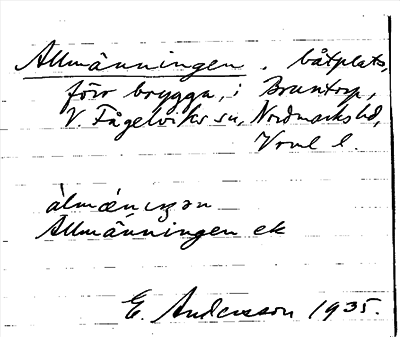 Allmänningen, båtplats,
förr brygga, i Bruntorp,
V. Fågelviks sn, Nordmarks hd,
Vrml l.
àlmǽnıŋən
Allmänningen ek
E. Andersson 1935.